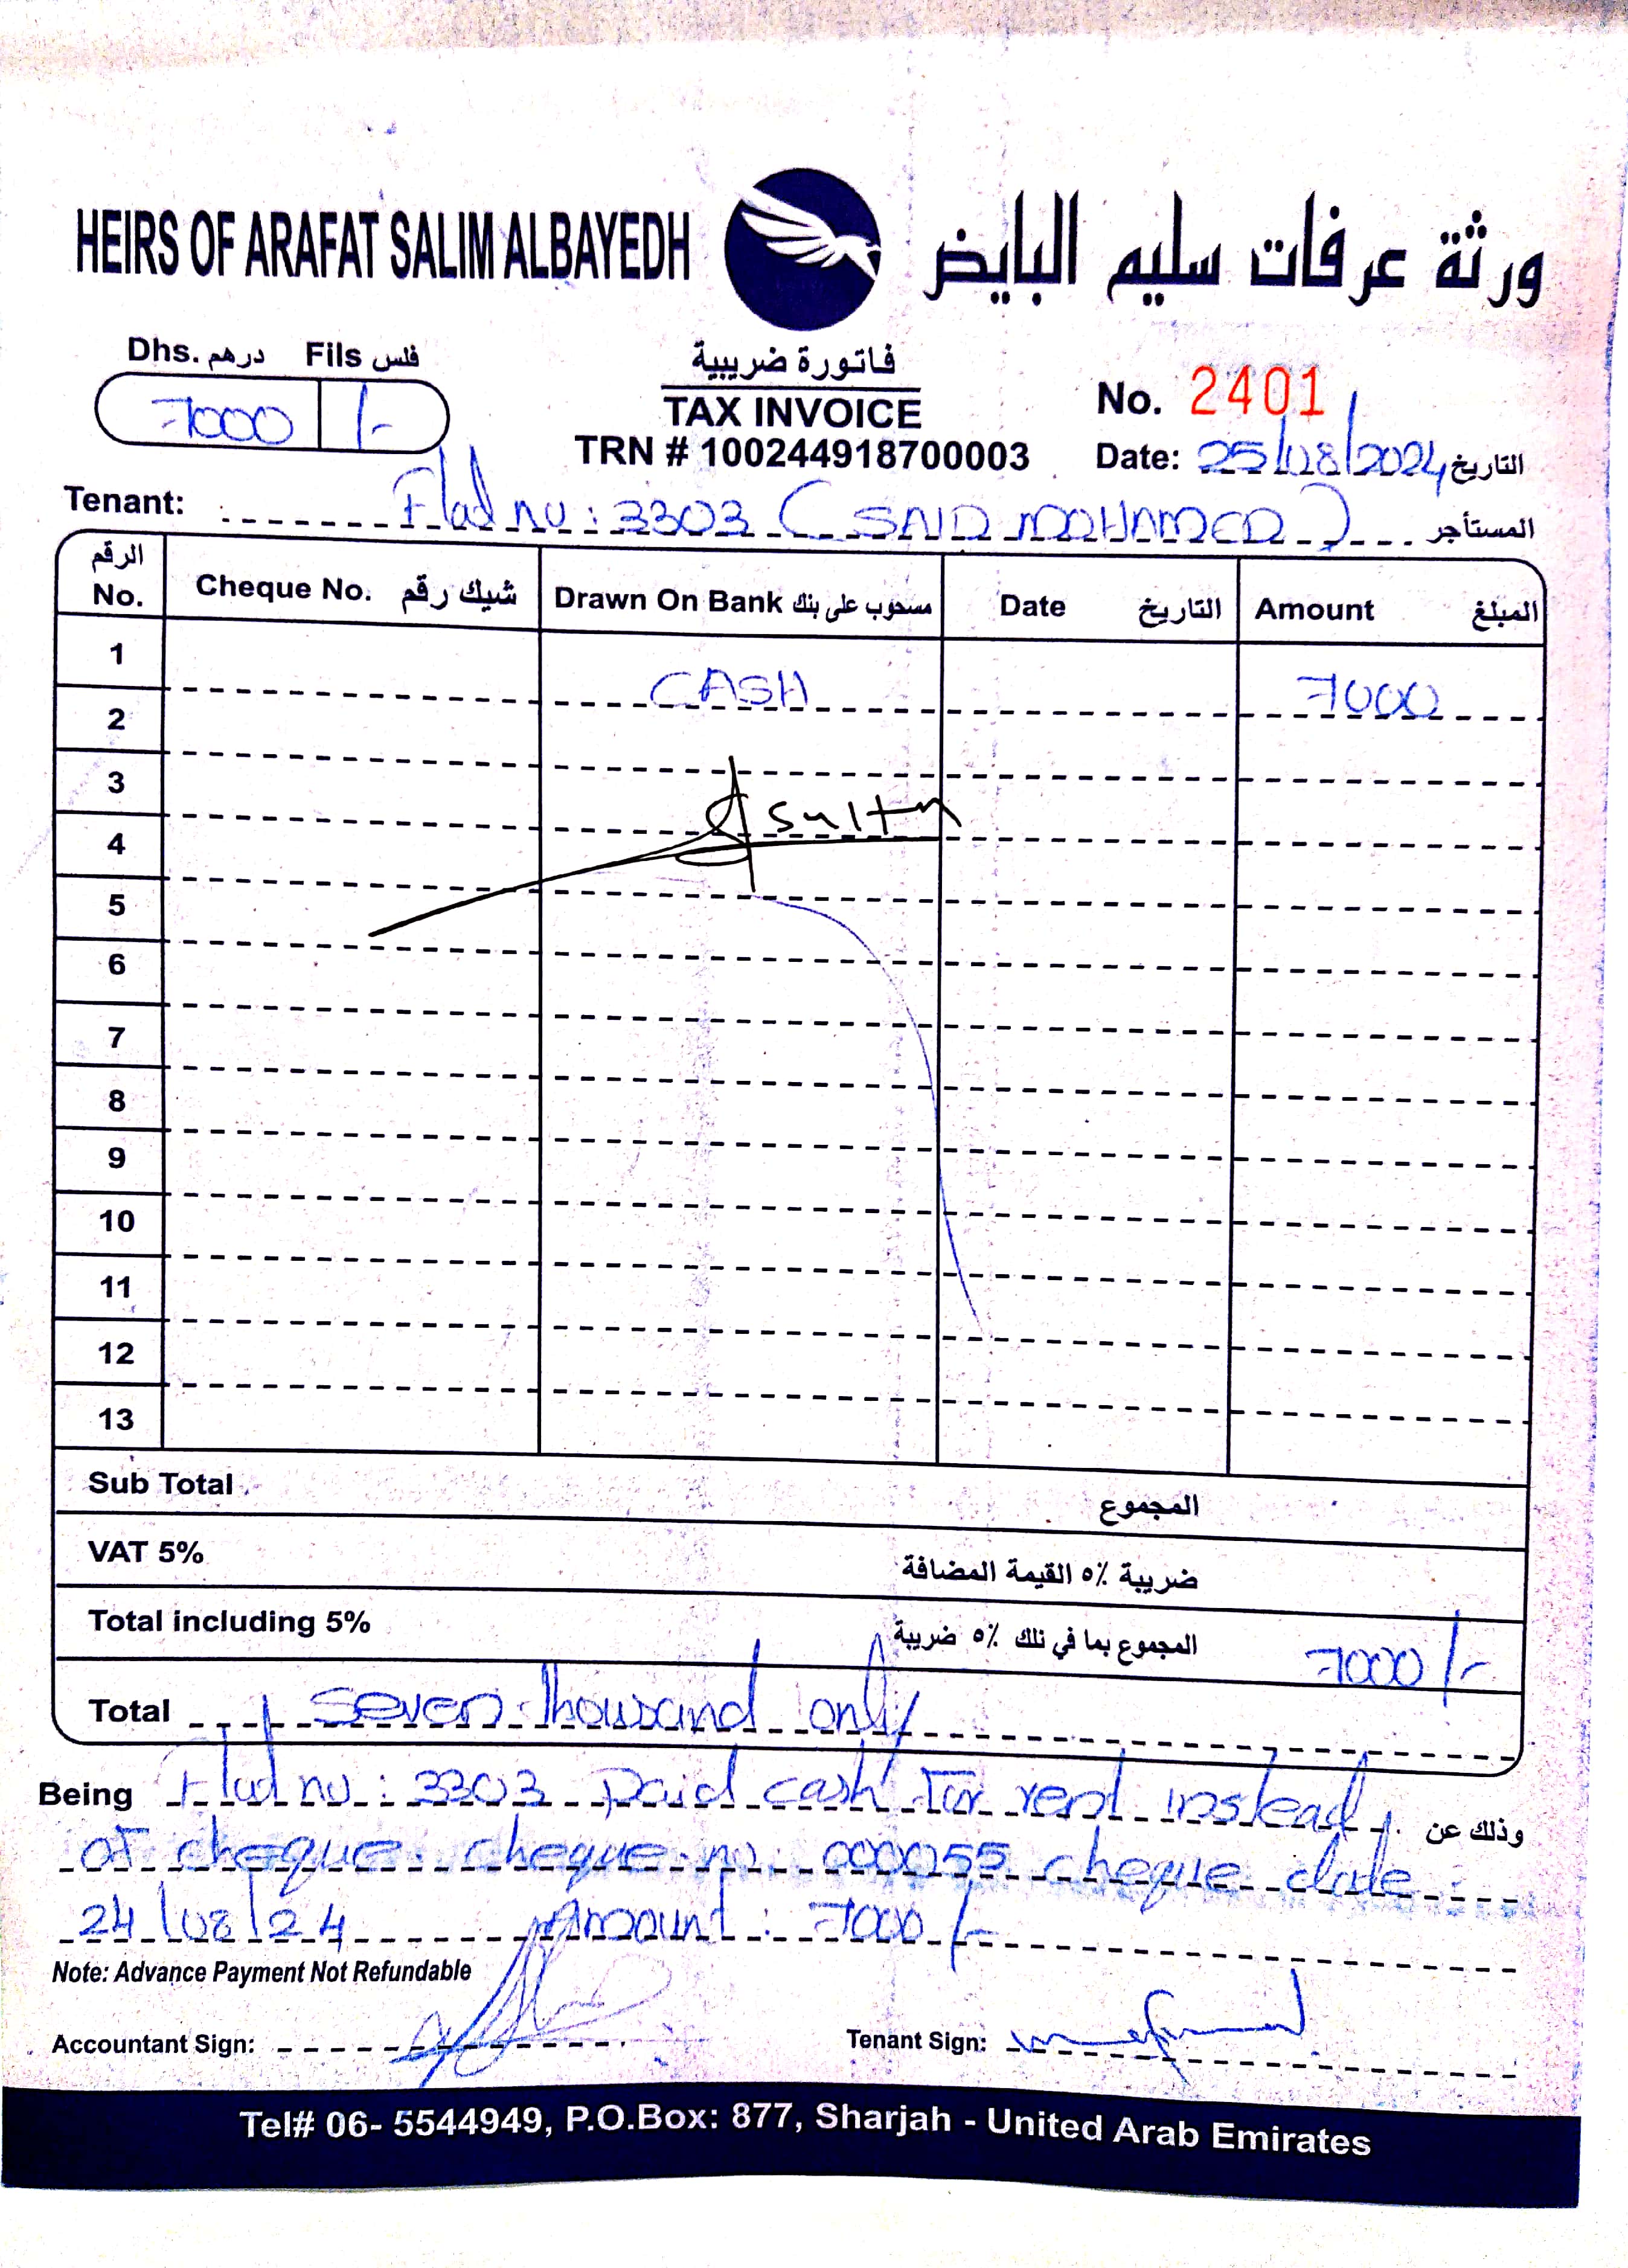 HEIRS OF ARAFAT SALIM ALBAYEDH ورثة عرفات سليم البايض
Dhs. درهم Fils فلس
7000 /-
فاتورة ضريبية
TAX INVOICE
TRN # 100244918700003
No. 2401
Date: 25/08/2024 التاريخ
Tenant: Flat no: 3303 (SAID MOHAMED) المستأجر
الرقم No. Cheque No. شيك رقم Drawn On Bank مسحوب على بنك Date التاريخ Amount المبلغ
1 CASH 7000
2
3
4
5
6
7
8
9
10
11
12
13
Sub Total المجموع
VAT 5% ضريبة ٥٪ القيمة المضافة
Total including 5% المجموع بما في ذلك ٥٪ ضريبة 7000/-
Total Seven thousand only
Being Flat no: 3303 paid cash for rent instead وذلك عن
of cheque. cheque no 000055 cheque date
24/08/24 Amount: 7000/-
Note: Advance Payment Not Refundable
Accountant Sign: Tenant Sign:
Tel# 06- 5544949, P.O.Box: 877, Sharjah - United Arab Emirates